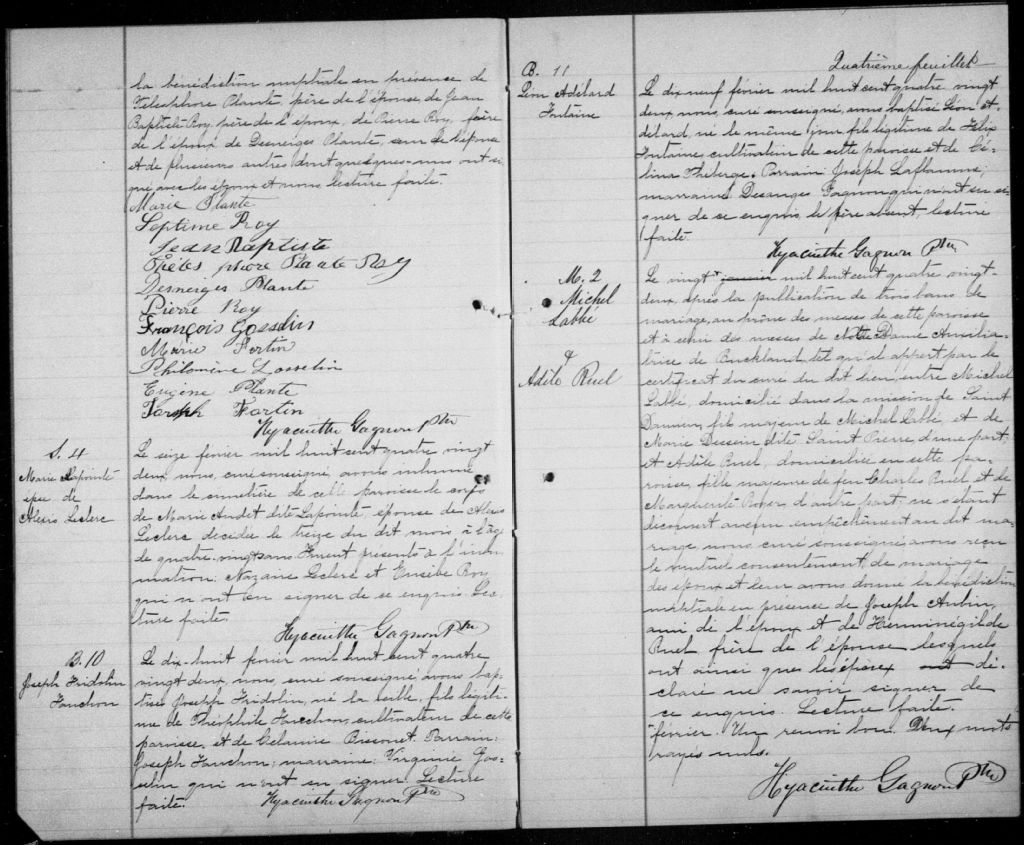 la bénédiction nuptiale en présence de
Télesphore Plante, père de l'épouse, de Jean
Baptiste Roy, père de l'époux, de Pierre Roy, frère
de l'époux de Desneiges Plante, sœur de l'épouse
et de plusieurs autres dont quelques-uns ont si-
gné avec les époux et nous. Lecture faite.
Marie Plante
Septime Roy
Jean Baptiste
Téles phore Plante Roy
Desneiges Plante
Pierre Roy
François Gosselin
Marie Fortin
Philomène Gosselin
Eugène Plante
Joseph Fortin
Hyacinthe Gagnon Ptre
S. 4
Marie Lapointe
épse de
Alexis Leclerc
Le seize février mil huit cent quatre vingt
deux nous, curé soussigné, avons inhumé
dans le cimetière de cette paroisse le corps
de Marie Audet dite Lapointe, épouse de Alexis
Leclerc décédée le treize du dit mois à l'âge
de quatre-vingts ans. Furent présents à l'inhu-
mation: Nazaire Leclerc et Eusèbe Roy
qui n'ont su signer de ce enquis. Lec-
ture faite.
Hyacinthe Gagnon Ptre
B. 10
Joseph Fridolin
Fauchon
Le dix-huit février mil huit cent quatre
vingt deux, nous, curé soussigné avons bap-
tisé Joseph Fridolin, né la veille, fils légiti-
me de Théophile Fauchon, cultivateur de cette
paroisse, et de Célamire Bissonet. Parrain:
Joseph Fauchon; marraine: Virginie Gos-
selin qui n'ont su signer. Lecture
faite. Hyacinthe Gagnon Ptre
Quatrième feuillet
B. 11
Léon Adélard
Fontaine
Le dix neuf février mil huit cent quatre vingt
deux, nous, curé soussigné, avons baptisé Léon A-
délard, né le même jour, fils légitime de Félix
Fontaine, cultivateur de cette paroisse et de Cé-
lina Théberge. Parrain Joseph Laflamme,
marraine Desanges Gagnon qui n'ont su si-
gner de ce enquis, le père absent, lecture
faite.
Hyacinthe Gagnon Ptre
M. 2
Michel
Labbé
&
Adèle Ruel
Le vingt janvier mil huit cent quatre vingt-
deux, après la publication de trois bans de
mariage, au prône des messes de cette paroisse
et à celui des messes de Notre Dame Auxilia-
trice de Buckland, tel qu'il appert par le
certificat du curé du dit lieu, entre Michel
Labbé, domicilié dans la mission de Saint
Damien, fils majeur de Michel Labbé, et de
Marie Dessein dite Saint Pierre, d'une part;
et Adèle Ruel, domiciliée en cette pa-
roisse, fille majeure de feu Charles Ruel et de
Marguerite Royer d'autre part ne s'étant
découvert aucun empêchement au dit ma-
riage, nous curé soussigné avons reçu
le mutuel consentement de mariage
des époux et leur avons donné la bénédiction
nuptiale en présence de Joseph Aubin,
ami de l'époux et de Herménégilde
Ruel frère de l'épouse lesquels
ont ainsi que les époux ont dé-
claré ne savoir signer de
ce enquis. Lecture faite.
février. Un renvoi bon. Deux mots
rayés nuls.
Hyacinthe Gagnon Ptre